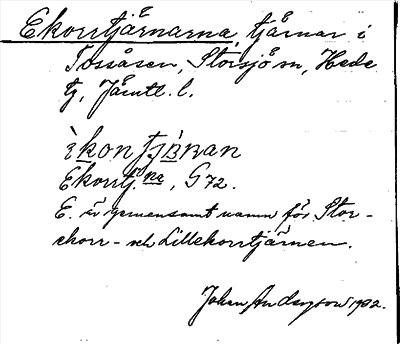 Ekorrtjärnarna, tjärnar i
Tossåsen, Storsjö sn, Hede
tg, Jämtl. l.
èkon tjànan
Ekorrtj. na, G 72.
E. är gemensamt namn för Stor-
ekorr- och Lillekorrtjärnen.
Johan Andersson 1932.